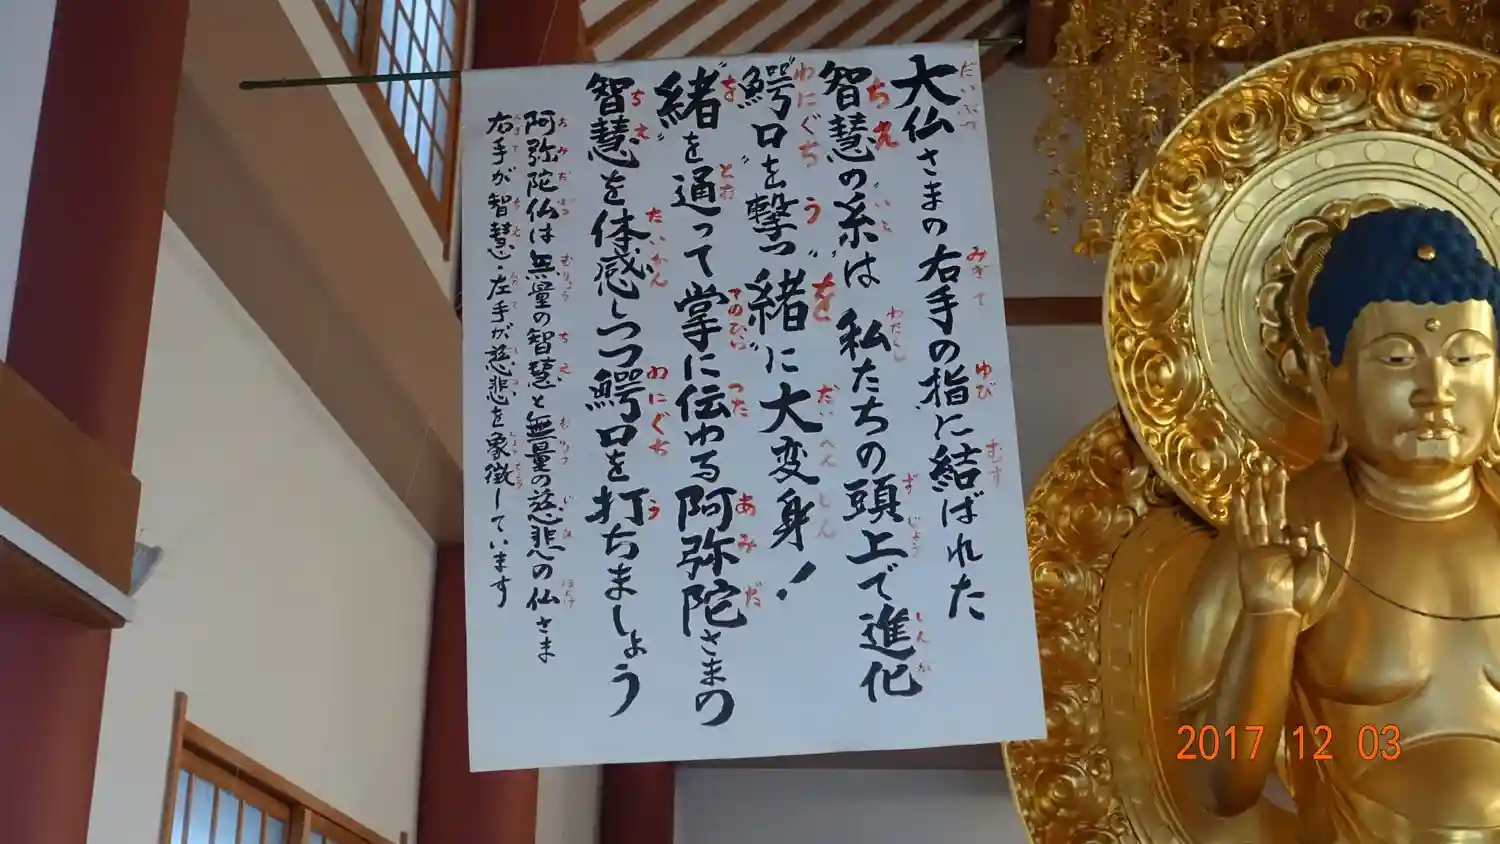 大仏さまの右手の指に結ばれた
智慧の糸は 私たちの頭上で進化
鰐口を撃つ緒に大変身！
緒を通って掌に伝わる阿弥陀さまの
智慧を体感しつつ鰐口を打ちましょう
阿弥陀仏は無量の智慧と無量の慈悲の仏さま
右手が智慧・左手が慈悲を象徴しています
2017 12 03